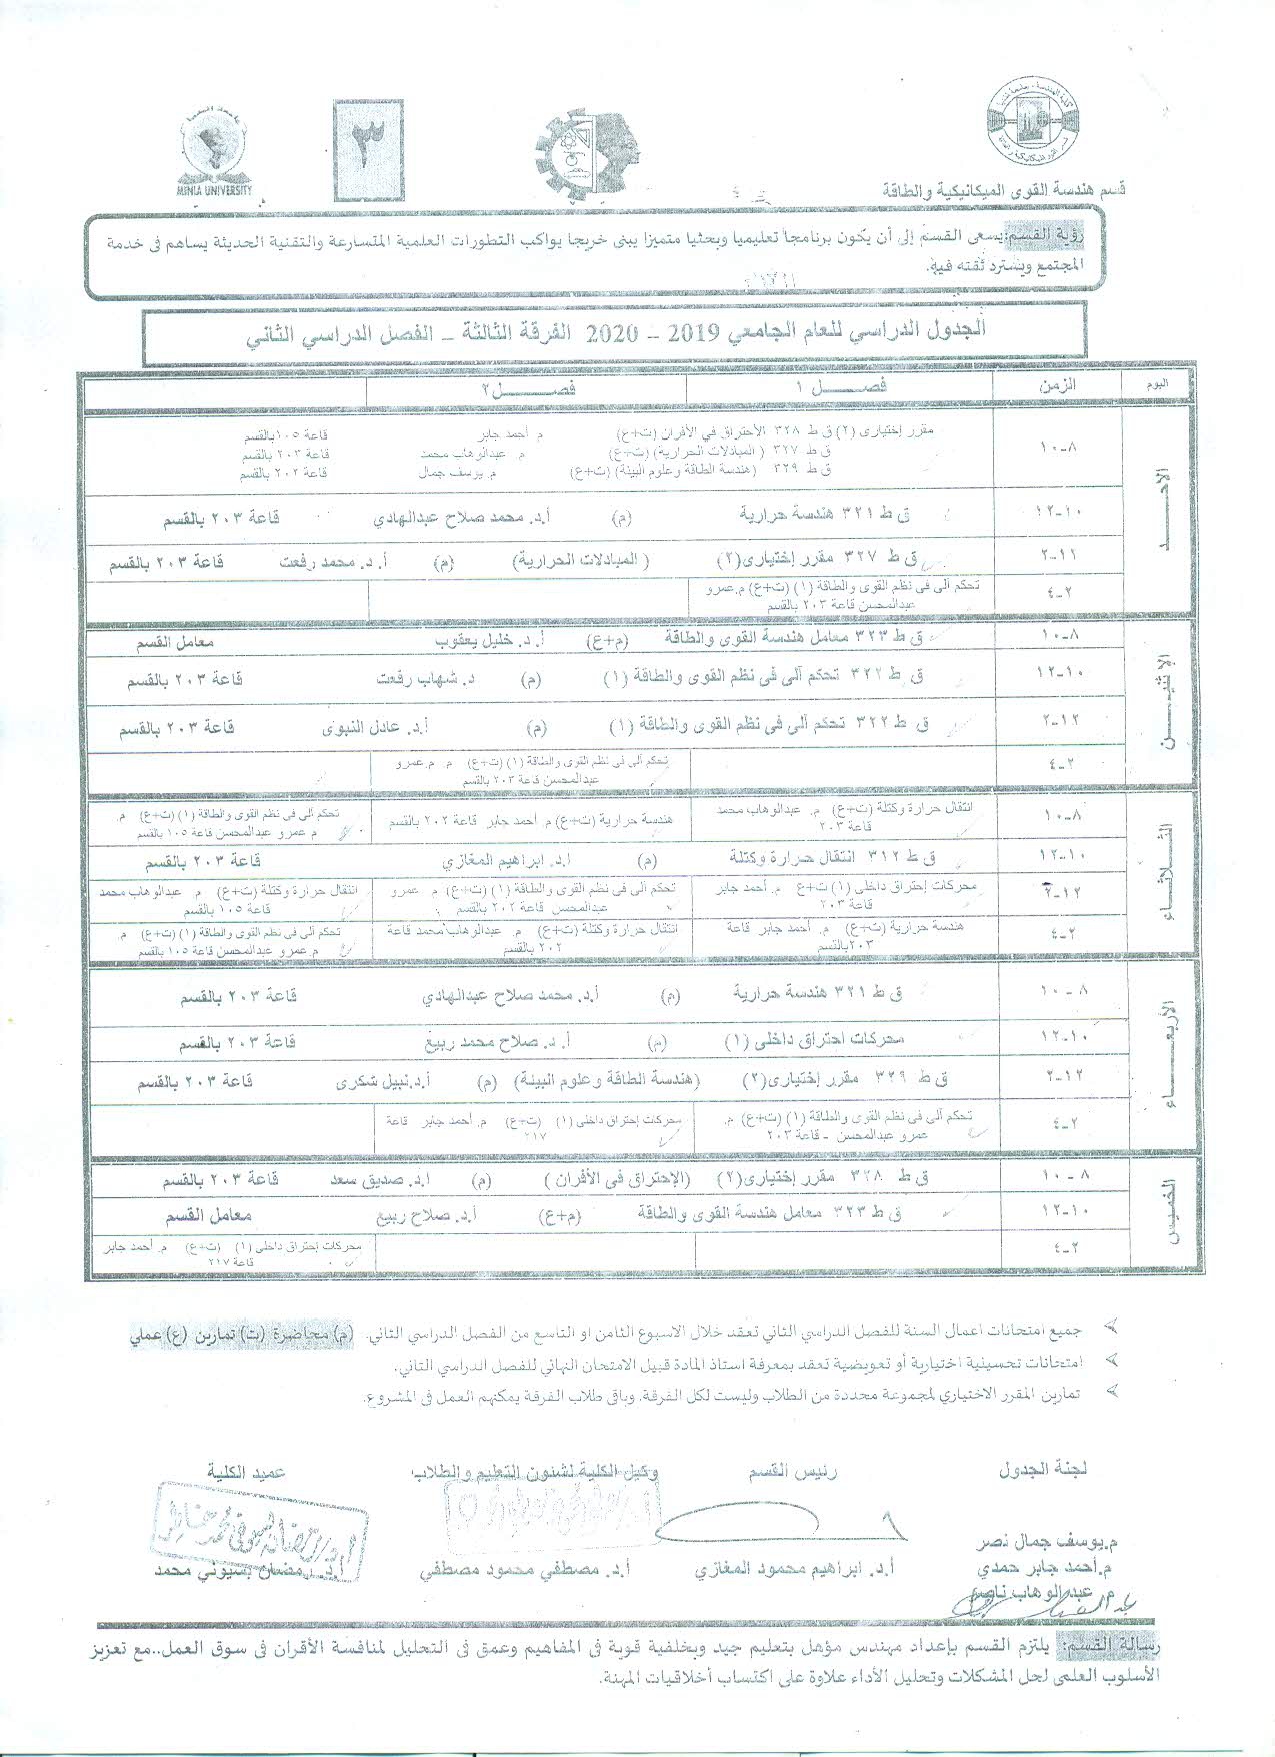 MINIA UNIVERSITY
٣
قسم هندسة القوى الميكانيكية والطاقة
رؤية القسم: يسعى القسم إلى أن يكون برنامجا تعليميا وبحثيا متميزا يبنى خريجا يواكب التطورات العلمية المتسارعة والتقنية الحديثة يساهم فى خدمة
المجتمع ويسترد ثقته فيه.
الجدول الدراسي للعام الجامعي 2019 – 2020 الفرقة الثالثة – الفصل الدراسي الثاني
اليوم الزمن فصـــل ١ فصـــل ٢
الاحــــد
٨-١٠ مقرر إختيارى (٢) ق ط ٣٢٨ الأحتراق في الأفران (ت+ع) م. أحمد جابر قاعة ١٠٥ بالقسم
ق ط ٣٢٧ (المبادلات الحرارية) (ت+ع) م. عبدالوهاب محمد قاعة ٢٠٣ بالقسم
ق ط ٣٢٩ (هندسة الطاقة وعلوم البيئة) (ت+ع) م. يوسف جمال قاعة ٢٠٢ بالقسم
١٠-١٢ ق ط ٣٢١ هندسة حرارية (م) أ.د. محمد صلاح عبدالهادي قاعة ٢٠٣ بالقسم
١٢-٢ ق ط ٣٢٧ مقرر إختيارى(٢) (المبادلات الحرارية) (م) أ.د. محمد رفعت قاعة ٢٠٣ بالقسم
٢-٤ تحكم آلى فى نظم القوى والطاقة (١) (ت+ع) م.عمرو
عبدالمحسن قاعة ٢٠٣ بالقسم
الإثنيـــن
٨-١٠ ق ط ٣٢٣ معامل هندسة القوى والطاقة (م+ع) أ.د. خليل يعقوب معامل القسم
١٠-١٢ ق ط ٣٢٢ تحكم آلى فى نظم القوى والطاقة (١) (م) د. شهاب رفعت قاعة ٢٠٣ بالقسم
١٢-٢ ق ط ٣٢٢ تحكم آلى فى نظم القوى والطاقة (١) (م) أ.د. عادل النبوى قاعة ٢٠٣ بالقسم
٢-٤ تحكم آلى فى نظم القوى والطاقة (١) (ت+ع) م. م.عمرو
عبدالمحسن قاعة ٢٠٣ بالقسم
الثلاثـــاء
٨-١٠ انتقال حرارة وكتلة (ت+ع) م. عبدالوهاب محمد هندسة حرارية (ت+ع) م. أحمد جابر قاعة ٢٠٢ بالقسم تحكم آلى فى نظم القوى والطاقة (١) (ت+ع) م.
قاعة ٢٠٣ م عمرو عبدالمحسن قاعة ١٠٥ بالقسم
١٠-١٢ ق ط ٣١٢ انتقال حرارة وكتلة (م) ا.د. ابراهيم المغازي قاعة ٢٠٣ بالقسم
١٢-٢ محركات إحتراق داخلى (١) ت+ع م. أحمد جابر تحكم آلى فى نظم القوى والطاقة (١) (ت+ع) م. عمرو انتقال حرارة وكتلة (ت+ع) م. عبدالوهاب محمد
قاعة ٢٠٣ عبدالمحسن قاعة ٢٠٢ بالقسم قاعة ١٠٥ بالقسم
٢-٤ هندسة حرارية (ت+ع) م. أحمد جابر قاعة انتقال حرارة وكتلة (ت+ع) م. عبدالوهاب محمد قاعة تحكم آلى فى نظم القوى والطاقة (١) (ت+ع) م.
٢٠٣بالقسم ٢٠٢ بالقسم م.عمرو عبدالمحسن قاعة ١٠٥ بالقسم
الأربعـــاء
٨-١٠ ق ط ٣٢١ هندسة حرارية (م) أ.د. محمد صلاح عبدالهادي قاعة ٢٠٣ بالقسم
١٠-١٢ محركات احتراق داخلى (١) (م) أ.د. صلاح محمد ربيع قاعة ٢٠٣ بالقسم
١٢-٢ ق ط ٣٢٩ مقرر إختيارى(٢) (هندسة الطاقة وعلوم البيئة) (م) أ.د. نبيل شكرى قاعة ٢٠٣ بالقسم
٢-٤ تحكم آلى فى نظم القوى والطاقة (١) (ت+ع) م. محركات إحتراق داخلى (١) (ت+ع) م. أحمد جابر قاعة
عمرو عبدالمحسن - قاعة ٢٠٣ ٢١٧
الخميس
٨-١٠ ق ط ٣٢٨ مقرر إختيارى(٢) (الإحتراق فى الأفران) (م) ا.د. صديق سعد قاعة ٢٠٣ بالقسم
١٠-١٢ ق ط ٣٢٣ معامل هندسة القوى والطاقة (م+ع) أ.د. صلاح ربيع معامل القسم
٢-٤ محركات إحتراق داخلى (١) (ت+ع) م. أحمد جابر
قاعة ٢١٧
جميع امتحانات اعمال السنة للفصل الدراسي الثاني تعقد خلال الاسبوع الثامن او التاسع من الفصل الدراسي الثاني. (م) محاضرة (ت) تمارين (ع) عملي
امتحانات تحسينية اختيارية أو تعويضية تعقد بمعرفة استاذ المادة قبيل الامتحان النهائي للفصل الدراسي الثاني.
تمارين المقرر الاختياري لمجموعة محددة من الطلاب وليست لكل الفرقة، وباقى طلاب الفرقة يمكنهم العمل فى المشروع.
لجنة الجدول رئيس القسم وكيل الكلية لشئون التعليم والطلاب عميد الكلية
م.يوسف جمال نصر
م.أحمد جابر حمدي أ.د. ابراهيم محمود المغازي أ.د. مصطفي محمود مصطفي أ.د. رمضان بسيوني محمد
م. عبدالوهاب ناصر
رسالة القسم: يلتزم القسم بإعداد مهندس مؤهل بتعليم جيد وبخلفية قوية فى المفاهيم وعمق فى التحليل لمنافسة الأقران فى سوق العمل..مع تعزيز
الأسلوب العلمى لحل المشكلات وتحليل الأداء علاوة على اكتساب أخلاقيات المهنة.